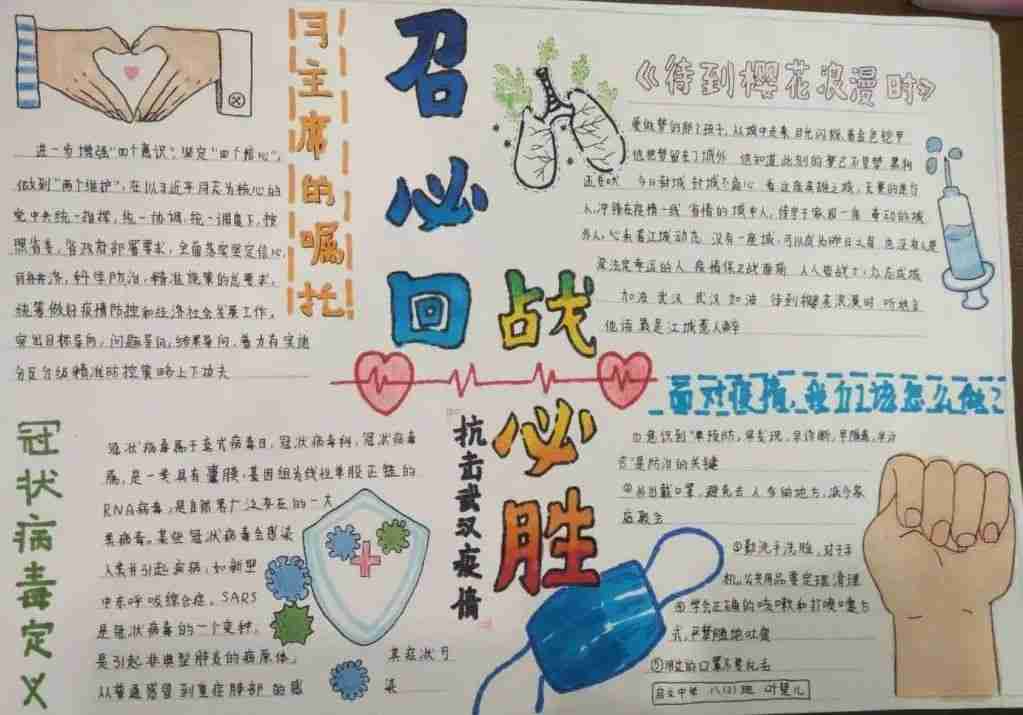 习主席的嘱托
进一步增强"四个意识",坚定"四个自信",
做到"两个维护",在以习近平同志为核心的
党中央统一指挥,统一协调,统一调度下,按
照省委,省政府部署要求,全面落实坚定信心,
同舟共济,科学防治,精准施策的总要求,
统筹做好疫情防控和经济社会发展工作,
突出目标导向,问题导向,结果导向,着力有实施
分区分级精准防控策略上下功夫
召必回
战必胜
抗击武汉疫情
《待到樱花浪漫时》
爱做梦的那个孩子,从城中走来 目光闪烁,着金色铠甲
他把梦留在了城外 他知道此别的
今日封城 封城不
人,冲锋在疫情一线
办人,心系着江城动态 没有一座城,可以成为昨日 也没有人是
的人 疫情保卫战 人人皆战士,众志成城
加油 武汉 武汉 加油 待到樱花浪漫时 听
他语 最是江城惹人醉
面对疫情,我们该怎么做?
①意识到"早预防,早发现,早诊断,早隔离,早治
疗"是防治的关键
②外出戴口罩,避免去人多的地方,减少家
庭聚会
③勤洗手洗脸,对于手
机,公共用品要定理清理
④学会正确的咳嗽和打喷嚏方
式,严禁随地吐痰
⑤用过的口罩不要乱丢
中学 八(2)班 叶
冠状病毒定义
冠状病毒属于套式病毒目,冠状病毒科,冠状病毒
属,是一类具有囊膜,基因组为线性单股正链的
RNA病毒,是自然界广泛存在的一大
类病毒。某些冠状病毒会感染
人类并引起疾病,如新型
中东呼吸综合症。SARS
是冠状病毒的一个变种,
是引起非典型肺炎的病原体, 其症状可
从普通感冒到重症肺部的感 染